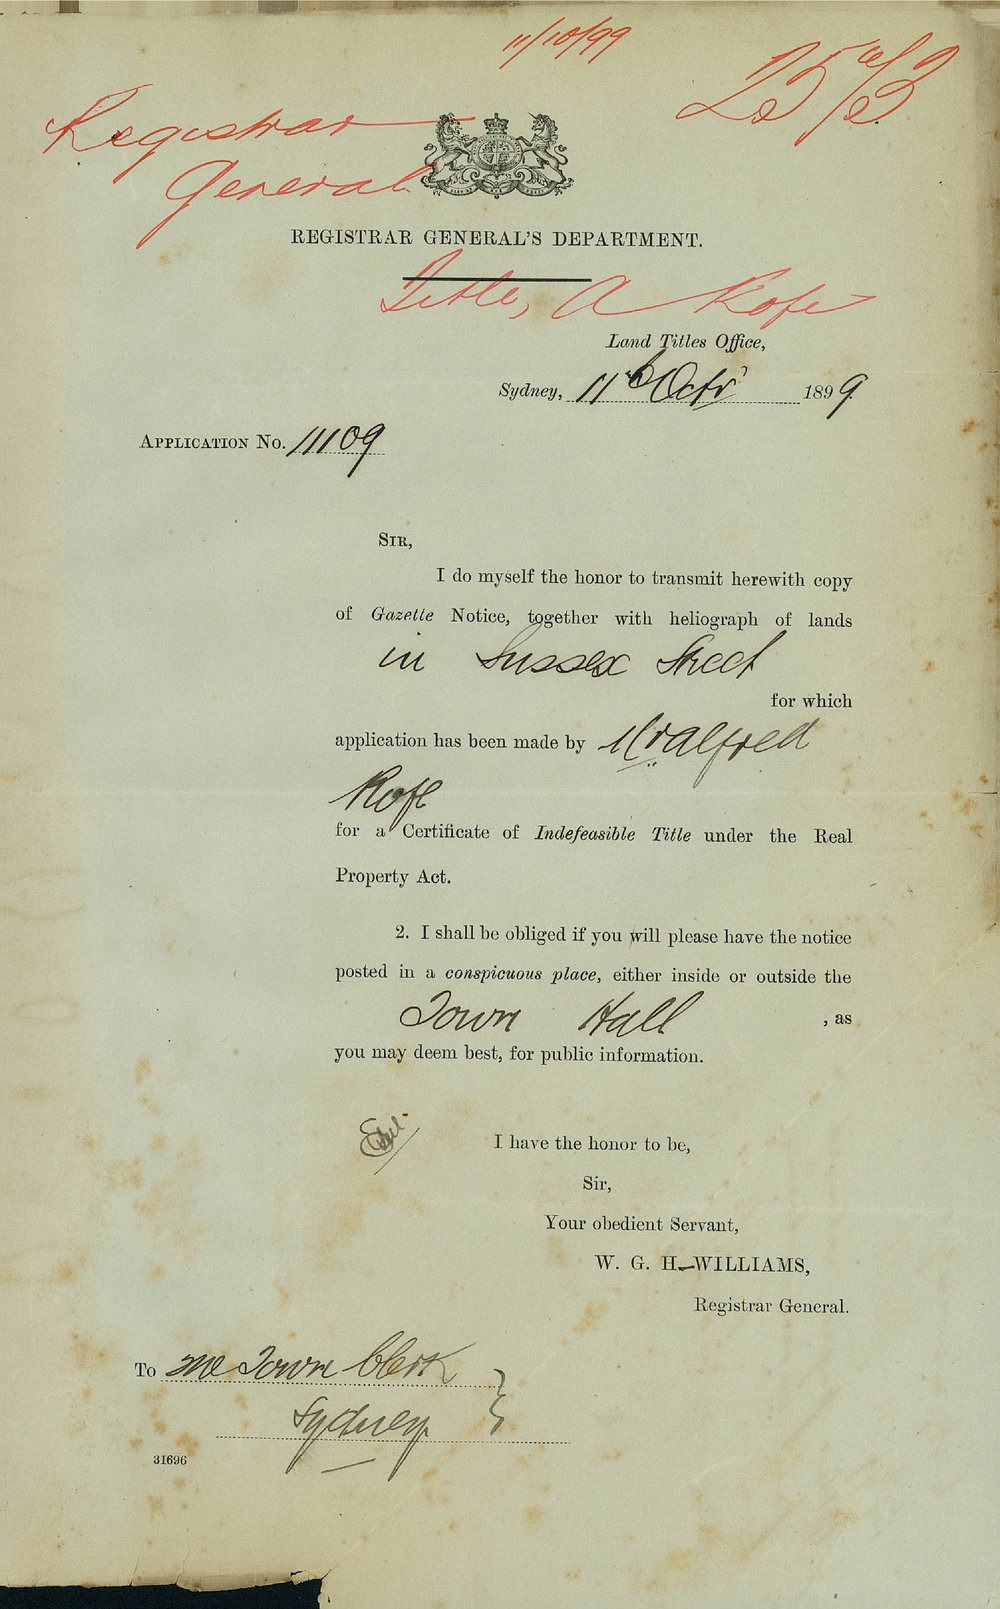 11/10/99
Registrar
General
REGISTRAR GENERAL'S DEPARTMENT.
Title, A Rofe
Land Titles Office,
Sydney, 11th Octr 1899
APPLICATION No. 11109
SIR,
I do myself the honor to transmit herewith copy
of Gazette Notice, together with heliograph of lands
in Sussex Street
for which
application has been made by Mr Alfred
Rofe
for a Certificate of Indefeasible Title under the Real
Property Act.
2. I shall be obliged if you will please have the notice
posted in a conspicuous place, either inside or outside the
Town Hall , as
you may deem best, for public information.
I have the honor to be,
Sir,
Your obedient Servant,
W. G. H. WILLIAMS,
Registrar General.
To The Town Clerk
Sydney
31696